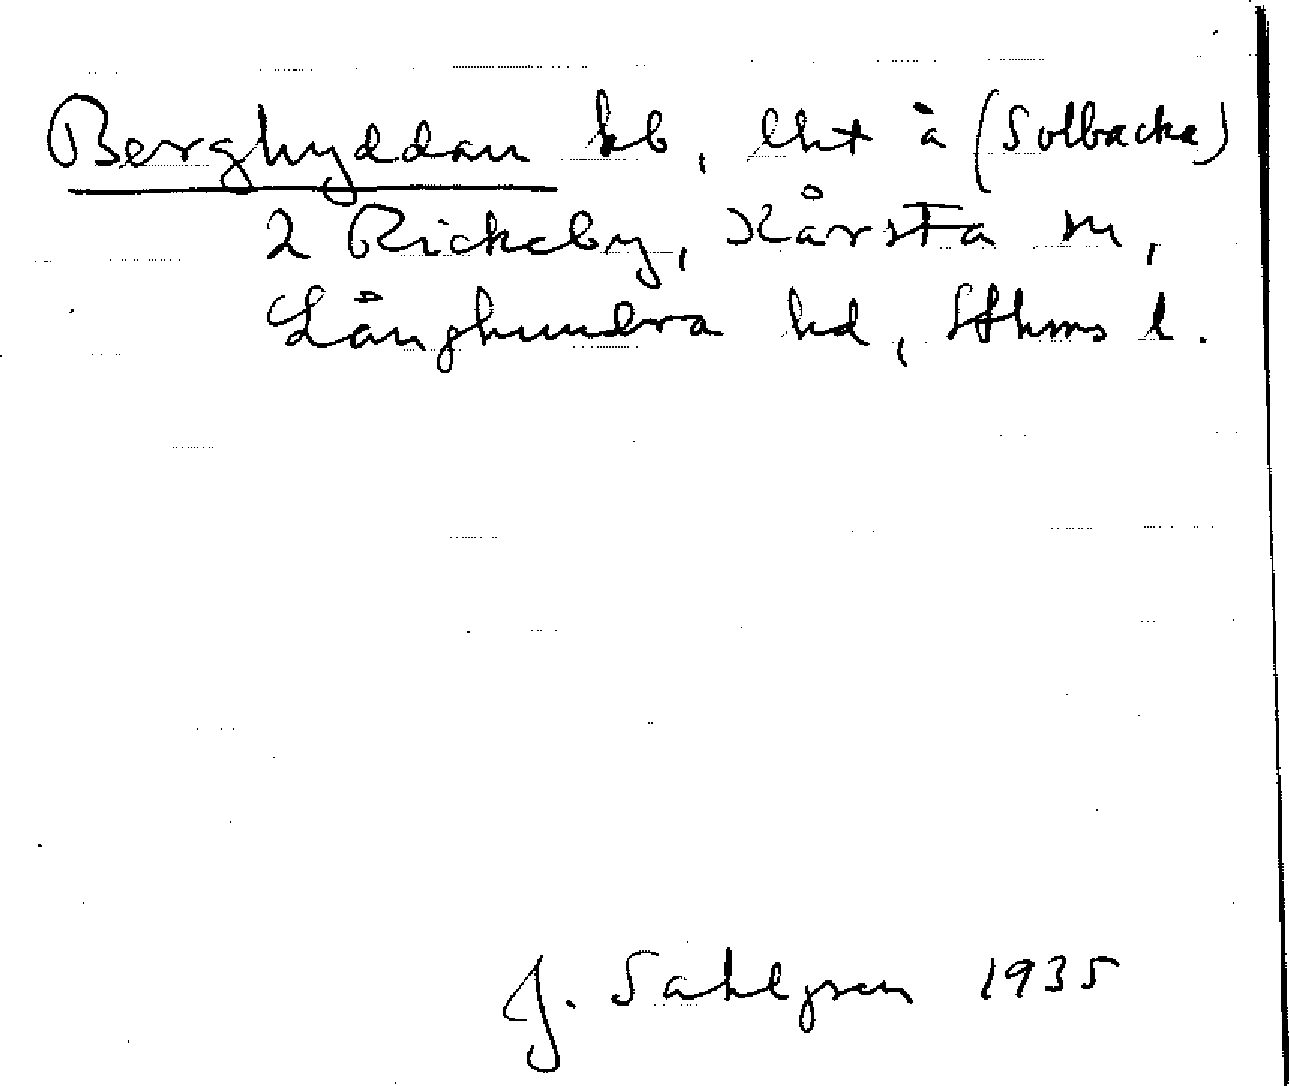 Berghyddan kb, lht å (Solbacka)
2 Rickeby, Kårsta sn,
Långhundra hd, Sthms l.
J. Sahlgren 1935